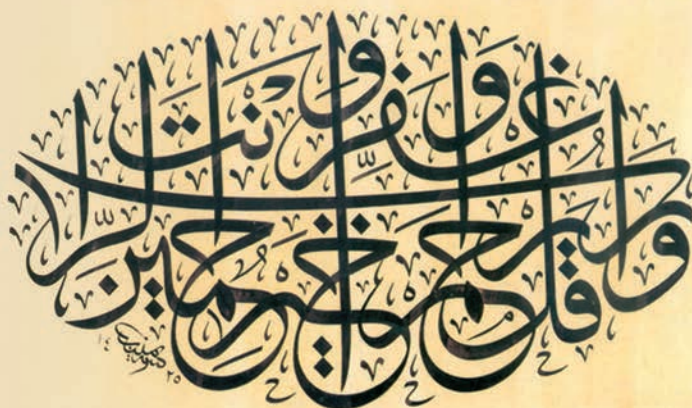 وقل رب اغفر وارحم وانت خير الرّحمين
١٤٢٥